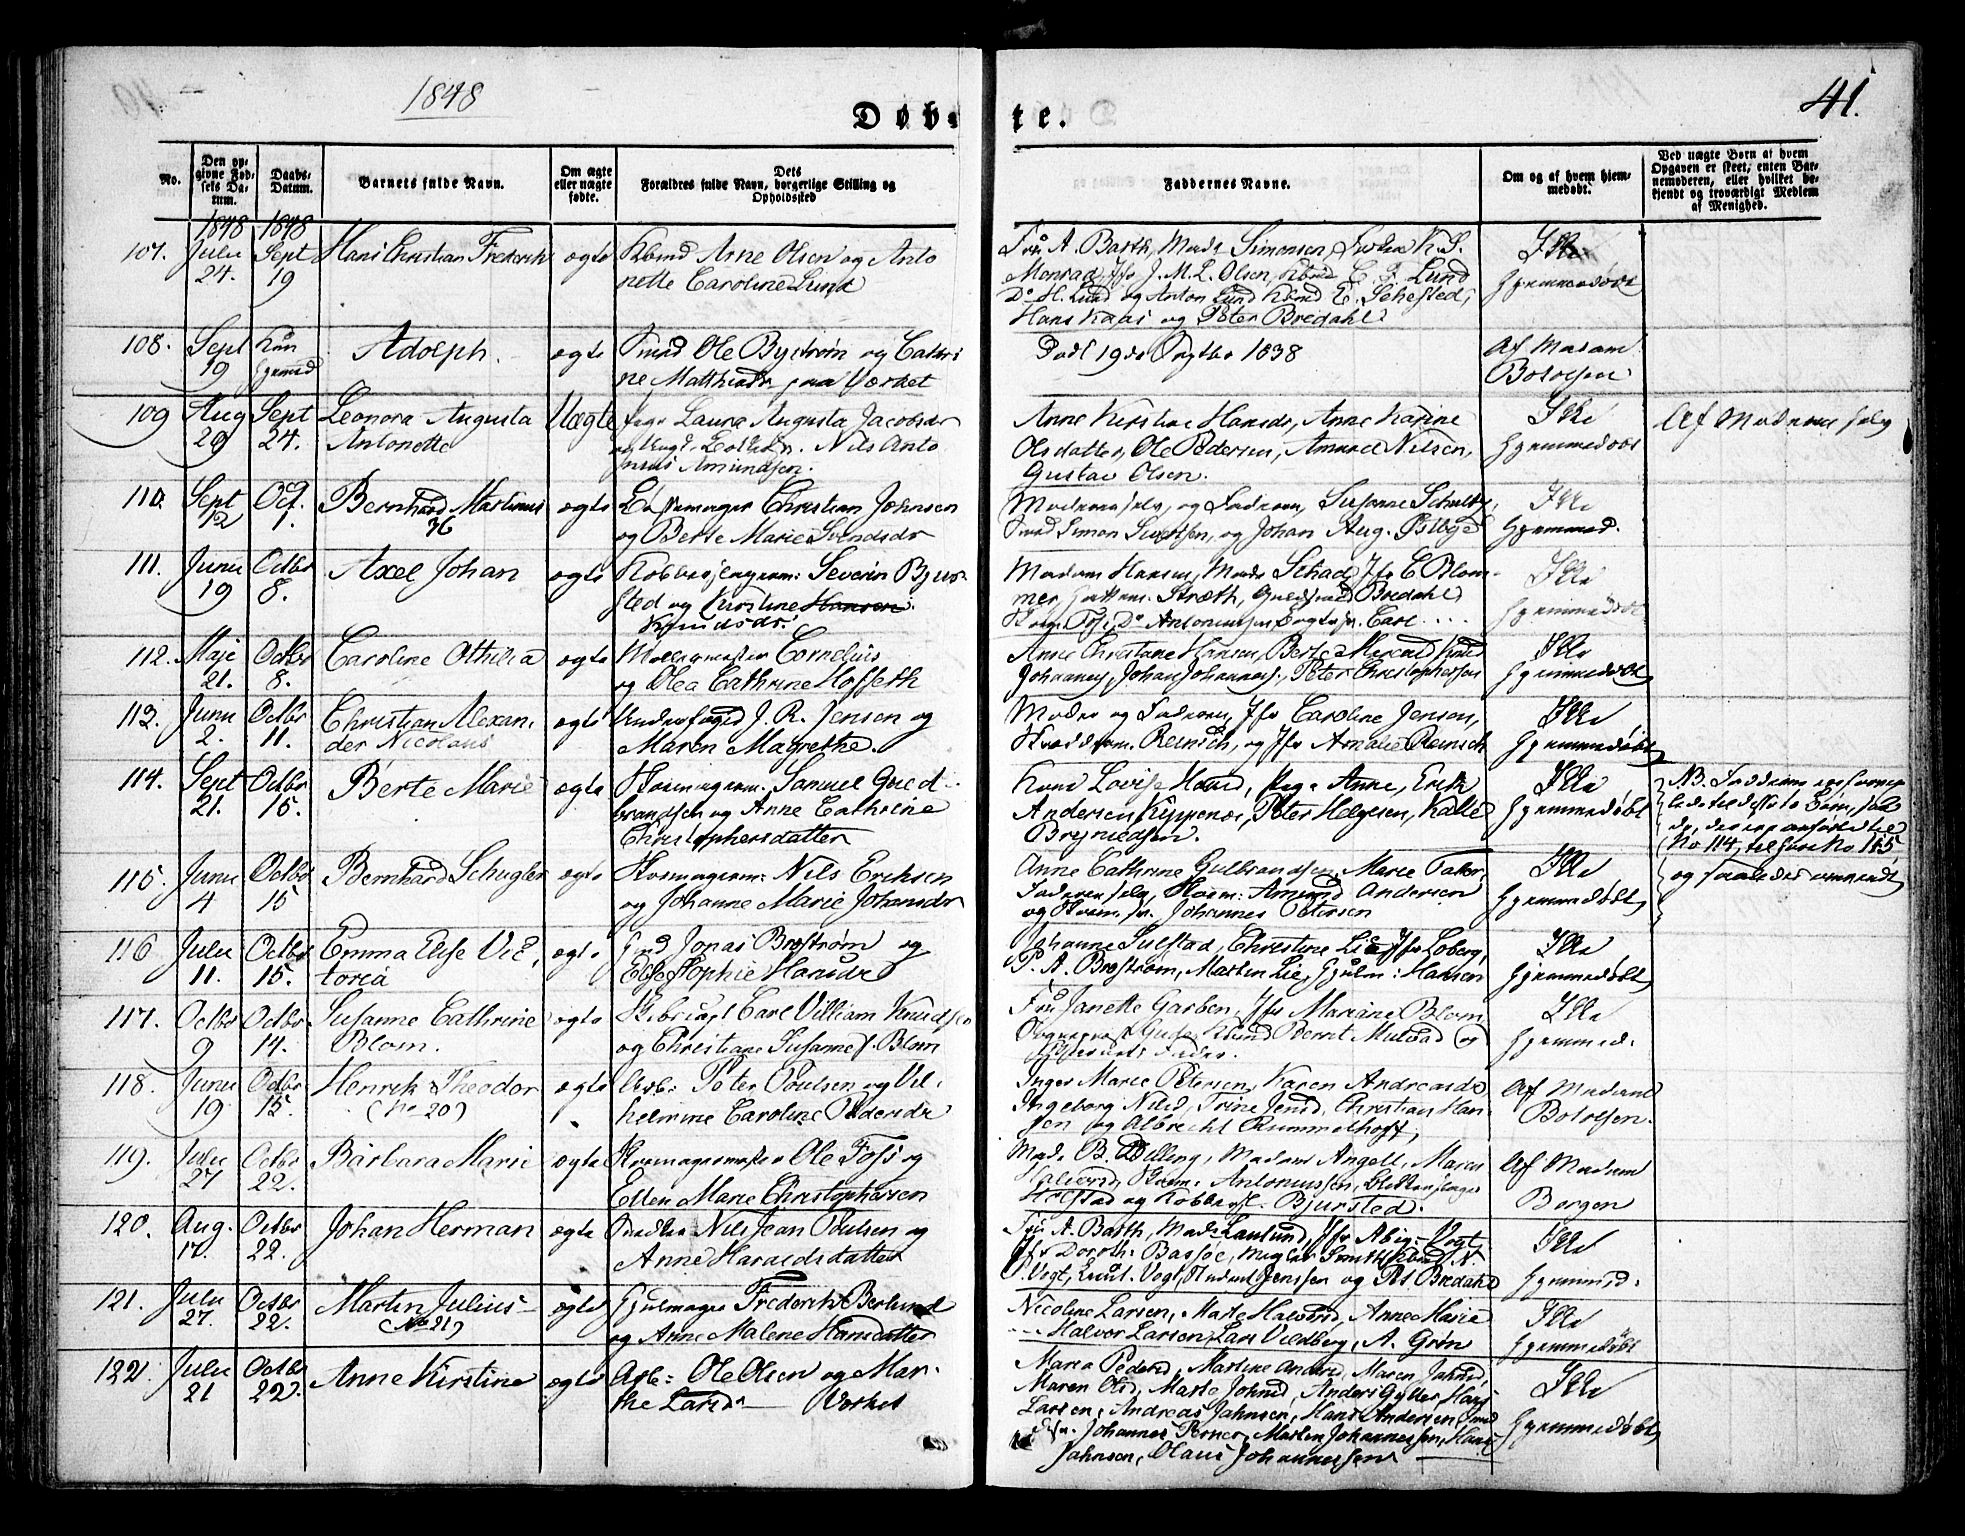 1848
41.
Døbte.
No.
Den opgivne Fødsels Datum.
Daabs-Datum.
Barnets fulde Navn.
Om ægte eller uægte fødte.
Dets Forældres fulde Navn, borgerlige Stilling og Opholdssted
Faddernes Navne.
Om og af hvem hjemmedøbt.
Ved uægte Børn af hvem Opgaven er skeet, enten Barnemoderen, eller hvilket bekjendt og troværdigt Medlem af Menighed.
1848 1848
107. Julii 24. Sept 19 Hans Christian Frederik ægte Arne Olsen og Anto
nette Caroline Lund
Fru A. Barth, Mad. Simonsen,
Monrad, Jfr J. M. L. Olsen, C. F. Lund
Do H. Lund og Anton Lund E. Sehested,
Hans Kaas og Peter Bredahl
Ikke
hjemmedøbt
108. Sept 19 Adolph. ægte Smed Ole Bystrøm og Cathri
ne Matthiasdr paa Værket
Død 19de Septbr 1838
Af Madam
Botolfsen
109 Aug 29 Sept 24. Leonora Augusta
Antonette
Uægte Pige Laura Augusta Jacobsdr
og Nils Anto
nius Amundsen.
Anne Kirstine Hansdr, Anne Karine
Olsdatter, Ole Pedersen, Amund Nilsen,
Gustav Olsen.
Ikke
hjemmedøbt
Af Moderen selv
110. Sept 12 Oct. 1. Bernhard Martinus
36
ægte Christian Johnsen
og Berte Marie Svendsdr
Moderen selv, og Faderen, Susanne Schulty,
Smed Simon og Johan Aug. Østbye
Ikke
hjemmed.
111. Junii 19 Octbr 8. Axel Johan ægte Severin Bjur
sted og Kirstine Hansen
Knudsdr.
Madam Hansen, Mad. Schad, Jfr E. Blom
mer, Stræth, Bredahl
Foss, Do Antoniussen, Carl
Ikke
hjemmedøbt
112. Maje 21. Octbr 8. Caroline Othilia ægte Cornelius
og Olea Cathrine Hofseth
Anne Christiane Hansen, Berte
Johannes, Johan Johannes, Peter Christophersen
Ikke
hjemmedøbt
113. Junii 2. Octbr 11. Christian Alexan
der Nicolaus
ægte Underfoged J. R. Jensen og
Maren Magrethe.
Moder og Faderen, Jfr Caroline Jensen,
Reinsch, og Jfr Amalie Reinsch
Ikke
hjemmedøbt
114. Sept 21. Octbr 15. Berte Marie ægte Samuel Gued
brandsen og Anne Cathrine
Christophersdatter
Kone Lovise Pige Anne, Erik
Andersen Peter Helgesen, Kalle
Brynildsen.
Ikke
hjemmedøbt
NB.
No 114, til No 115
og
115. Junii 4 Octbr 15 Bernhard Schugler ægte Nils Eriksen
og Johanne Marie Johansdr
Anne Cathrine Gulbrandsen, Marie
Faderen selv, Amund Andersen
og Johannes Petersen
Ikke
hjemmedøbt
116 Julii 11. Octbr 15. Emma Elise Vic
toria
ægte Jonas Brostrøm og
Else Sophie Hansdr
Johanne Sulstad, Christine Lie, Jfr Loberg,
P. A. Brostrøm, Martin Lie, Hansen
Ikke
hjemmedøbt
117. Octbr 9 Octbr 14. Susanne Cathrine
Blom.
ægte Carl Villiam Knudsen
og Christiane Susanne f. Blom
Fru Janette Garben, Jfr Mariane Blom
Bernt Mustad og
Ikke
hjemmed.
118. Junii 19 Octbr 15. Henrik Theodor
(No 20)
ægte Arb: Peter Poulsen og Vil
helmine Caroline Pedersdr
Inger Marie Petersen, Karen Andreasdr
Ingeborg Nilsd, Trine Jensd, Christian Han
sen og Albrecht Rummelhoff,
Af Madam
Botolfsen.
119. Julii 27 Octbr 22. Barbara Marie ægte Ole Foss og
Ellen Marie Christophersen
Mad. B. Dilling, Madam Angell, Maren
Halvorsd, Antoniussen,
Holstad og Bjursted.
Af Madam
Borgen
120. Aug. 17. Octbr 22. Johan Herman ægte Snedker Nils Jean Poulsen og
Anne Haraldsdatter
Fru A. Barth, Mad. Jfr Abig. Vogt
Jfr Doroth: Bassøe,
Vogt, Vogt, Jenssen og Pet Bredahl
Ikke
hjemmed.
121. Julii 27. Octbr 22. Martin Julius
(No 21)
ægte Hjulmager Frederik Berlund
og Anne Malene Hansdatter
Nicoline Larsen, Marte Halvorsd, Anne Marie
Halvor Larsen, Lars Veldberg, A. Grøn
Ikke
hjemmedøbt
122. Julii 21 Octbr 22. Anne Kirstine ægte Arb: Ole Olsen og Mar
the Larsdr Værket
Maria Pedersd, Martine Andersd, Maren Jahnsd,
Maren Olsd, Marte Johnsd, Anders Gylter, Hans
Larsen, Andreas Jahnsen, Hans Andersen, Smed
Johannes Perner, Martin Johannessen, Hans
Jahnsen, Olaus Johannessen
Ikke
hjemmedøbt